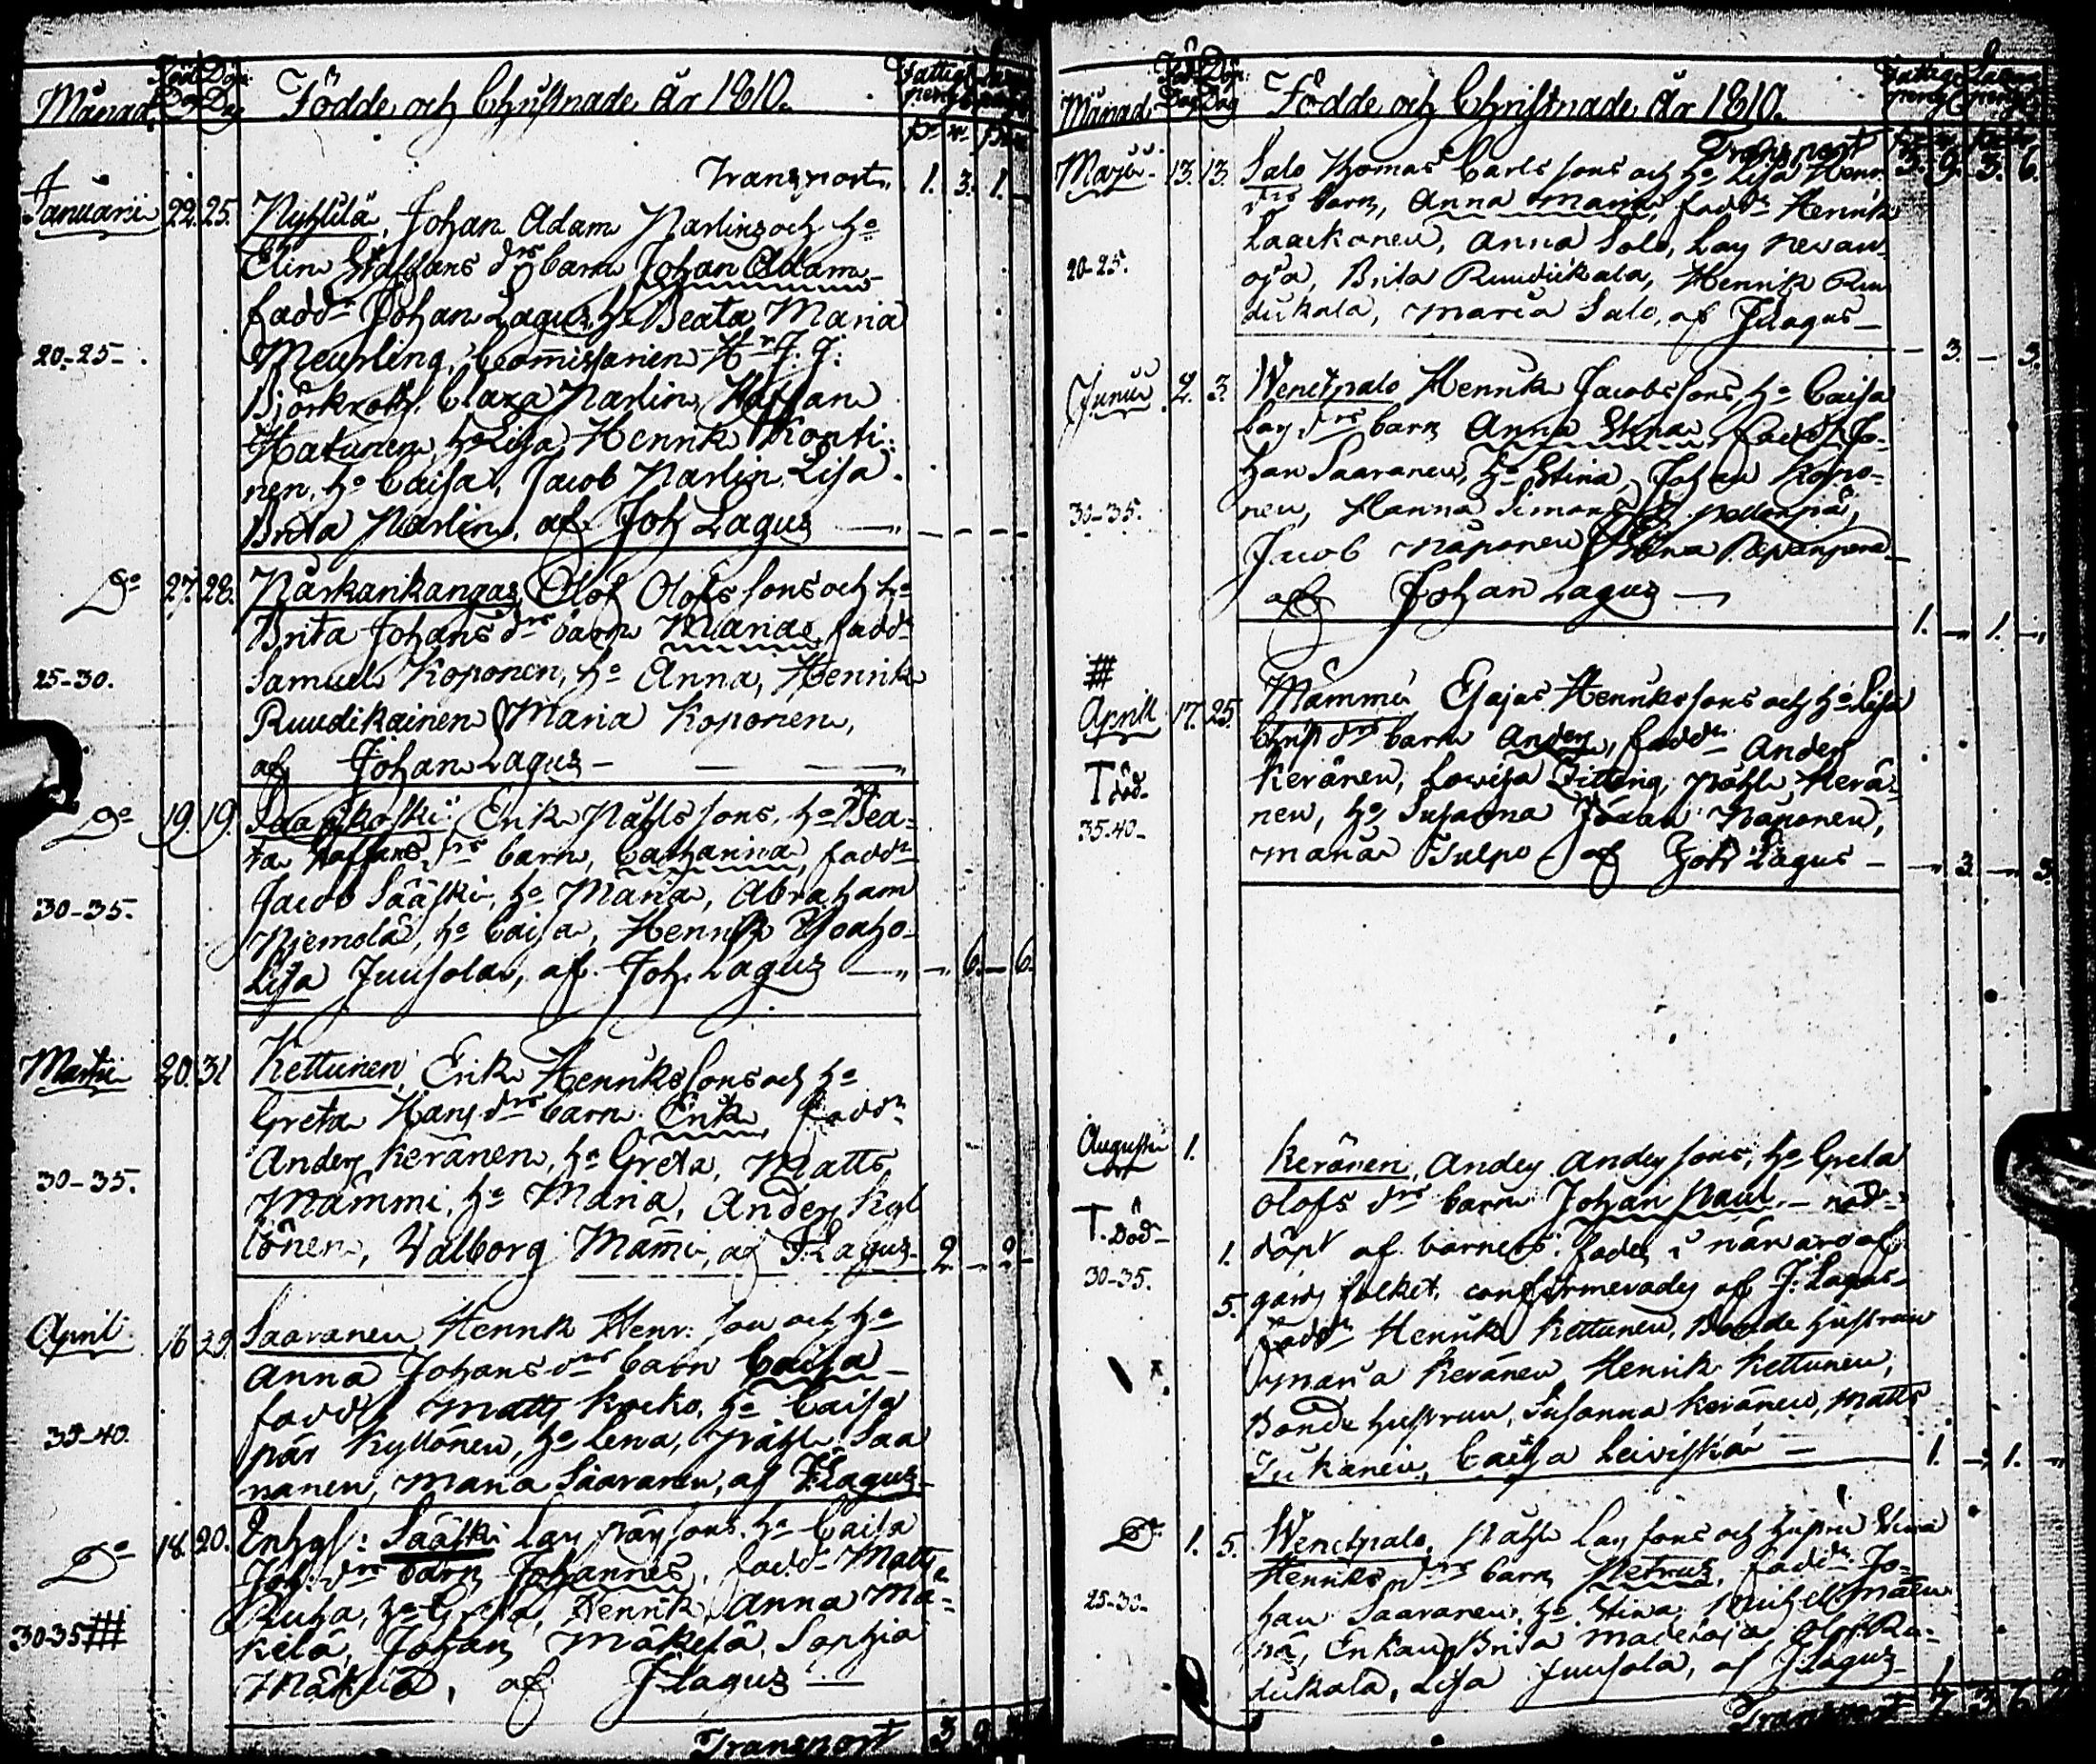 Månad Född Dag Döp: Dag Födde och Christnade år 1810. Fattig peng
Transport. 1. 3. 1. —
Januarii 22. 25. Nyhsilä, Johan Adam Narlins och ho
Elin Staffans drs barn Johan Adam
fadd. Johan Lagus, ho Beata Maria
20-25- Meurling, Commissarien Hr J. J:
Björkroth, Clara Narlin, Staffan
Hakunen, ho Lisa, Henrik Konti-
nen, ho Caisa, Jacob Narlin, Lisa
Brita Narlin, af Joh Lagus — — — — —
Do 27. 28. Närkänkangas, Olof Olofs sons och ho
Brita Johans drs barn Maria, fadd.
25-30. Samuel Koponen, ho Anna, Henrik
Ruudikainen, Maria Koponen,
af Johan Lagus — — —
Do 19. 19. Erik Påhls sons, ho Bea-
ta Staffans drs barn, Catharina, fadd.
Jacob Sääski, ho Maria, Abraham
30-35. Njemolä, ho Caisa, Henrik
Lisa Juusola, af Joh. Lagus — — 6. — 6.
Martii 20. 31 Kettunen, Erik Henriks sons och ho
Greta Hans drs barn Erik, fadd.
Anders Keränen, ho Greta, Matts
30-35. Mämmi, ho Maria, Anders Kyl
lönen, Valborg Mämmi, af J. Lagus 2. — 2 —
April 16 23. Saaranen, Henrik Henr: son och ho
Anna Johans drs barn Caisa —
fadd. Matts Kocko, ho Caisa
35-40. Pär Kyllönen, ho Lena, Påhl Saa
ranen, Maria Saaranen, af J. Lagus
Do 18. 20. Inhys: Sääski Lars Pärs sons, ho Caisa
Joh: drs barn Johannes, fadd. Matts
Ruha, ho Greta, Henrik, Anna Mä-
30-35 ### kelä, Johan Mäkelä, Sophia
Mäkelä, af J Lagus —
Transport 3 9
Månad Föd Dag Döp: Dag Födde och Christnade år 1810. Fattig peng
Transport 3. 9. 3. 6.
Maji 13. 13. Salo Thomas Carls sons och ho Lisa Henr.
drs barn, Anna Maria, fadd. Henrik
Laackonen, Anna Salo, Lars Nevan
20-25. oja, Brita Ruudikala, Henrik Ruu
dikala, Maria Salo, af J Lagus —
— 3. — 3.
Junii 2. 3. Wenetpalo Henrik Jacobs sons, ho Caisa
Lars drs barn Anna Stina, fadd. Jo-
han Saaranen, ho Stina, Johan Kopo-
30-35. nen, Hanna Simans
Jacob Näponen, Stina
af Johan Lagus —
1. — 1. —
###
April 17. 25. Mämmi Esajas Henriks sons och ho Lisa
drs barn Anders, fadd. Anders
T död. Keränen, Lovisa Zitting, Påhl Kerä-
35-40- nen, ho Susanna Johan Näponen,
Maria Tulpo, af Joh Lagus — — 3. — 3.
Augusti 1. Keränen, Anders Anders sons, ho Greta
Olofs drs barn Johan Paul — nöd-
T. död- 1. döpt af barnets fader i närvaro af
30-35. 5. gårds folket, confirmerades af J. Lagus-
fadd. Henrik Kettunen, Bonde hustrun
Maria Keränen, Henrik Kettunen,
Bonde hustrun, Susanna Keränen, Matts
Jukanen, Caisa Leiviskä — 1. — 1. —
Do 1. 5. Wenetpalo, Påhl Lars sons och hustru Stina
Henriks drs barn Petrus, fadd. Jo-
25-30- han Saaranen, ho Stina, Michel
Brita Madetoja Olof Ru-
dikala, Lisa Juusola, af J Lagus-
Transport 7. 3 6